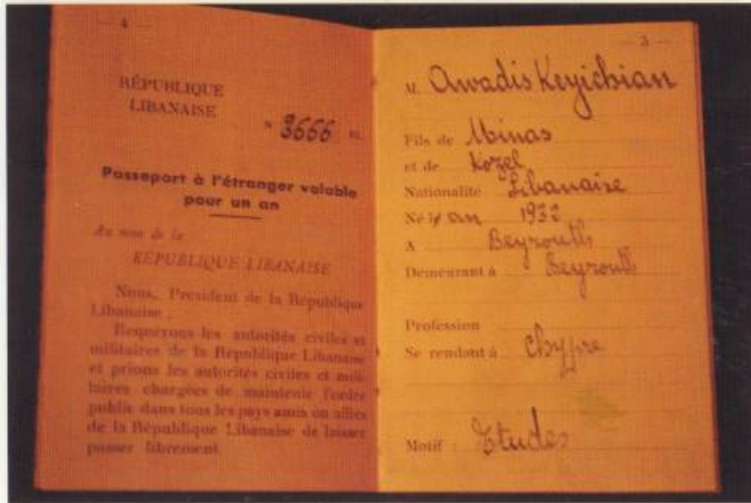 — 4 —
RÉPUBLIQUE
LIBANAISE
N 3666
Passeport à l'étranger valable
pour un an
Au nom de la
RÉPUBLIQUE LIBANAISE
Nous, Président de la République
Libanaise.
Requérons les autorités civiles et
militaires de la République Libanaise
et prions les autorités civiles et mili-
taires chargées de maintenir l'ordre
public dans tous les pays amis ou alliés
de la République Libanaise de laisser
passer librement.
— 5 —
M. Awadis Keyichian
Fils de Minas
et de Kozel
Nationalité Libanaise
Né an 1933
A Beyrouth
Demeurant à Beyrouth
Profession
Se rendant à Chypre
Motif : Etudes